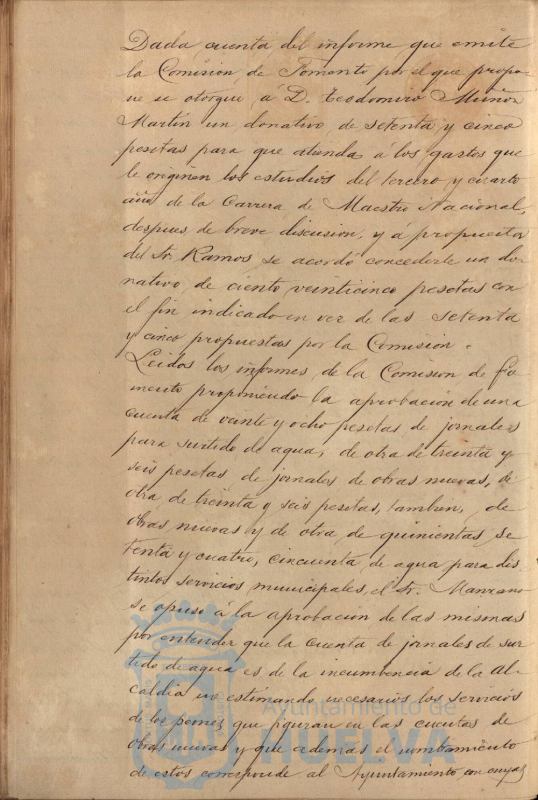 Dada cuenta del informe que emite
la Comision de Fomento por el que propo-
ne se otorgue á D. Teodomiro Muñoz
Martin un donativo de setenta y cinco
pesetas para que atienda á los gastos que
le originen los estudios del tercero y cuarto
año de la Carrera de Maestro Nacional,
despues de breve discusion, y á propuesta
del Sr. Ramos se acordó concederle un do-
nativo de ciento veinticinco pesetas con
el fin indicado en vez de las setenta
y cinco propuestas por la Comision.
Leidos los informes de la Comision de Fo-
mento proponiendo la aprobacion de una
cuenta de veinte y ocho pesetas de jornales
para surtido de agua, de otra de treinta y
seis pesetas de jornales de obras nuevas, de
otra de treinta y seis pesetas, tambien, de
obras nuevas y de otra de quinientas se
tenta y cuatro, cincuenta de agua para dis
tintos servicios municipales, el Sr. Manzano
se opuso á la aprobacion de las mismas
por entender que la cuenta de jornales de sur
tido de agua es de la incumbencia de la Al-
caldia no estimando necesarios los servicios
de los peones que figuran en las cuentas de
obras nuevas y que ademas el nombramiento
de estos corresponde al Ayuntamiento con cuya
Ayuntamiento de
HUELVA